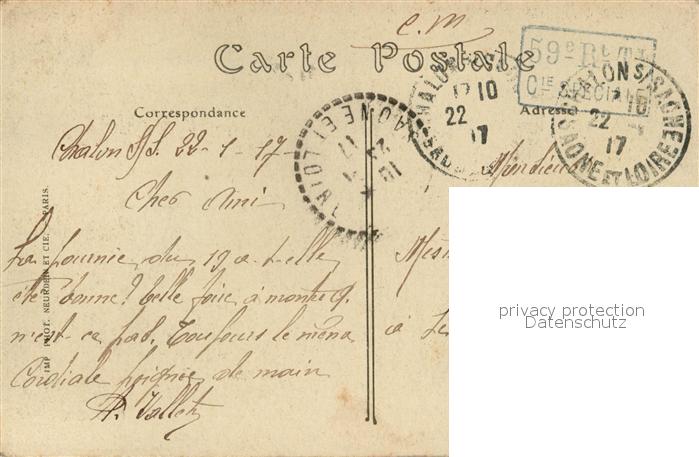 C. M
Carte Postale
59e Rt Tl
Cie SPÉCIALE
CHALON S/SAONE
SAONE ET LOIRE
17 10
22
17
10
22 -1
17
Correspondance
Adresse
SAONE ET LOIRE
23
17
Chalon S/S. 22-1-17-
Monsieur
Cher Ami
La journée du 19 a-t-elle
été bonne? belle foire à
n'est-ce pas. Toujours le même
à
Cordiale poignée de main
IMP. PHOT. NEURDEIN ET CIE. PARIS.
privacy protection
Datenschutz